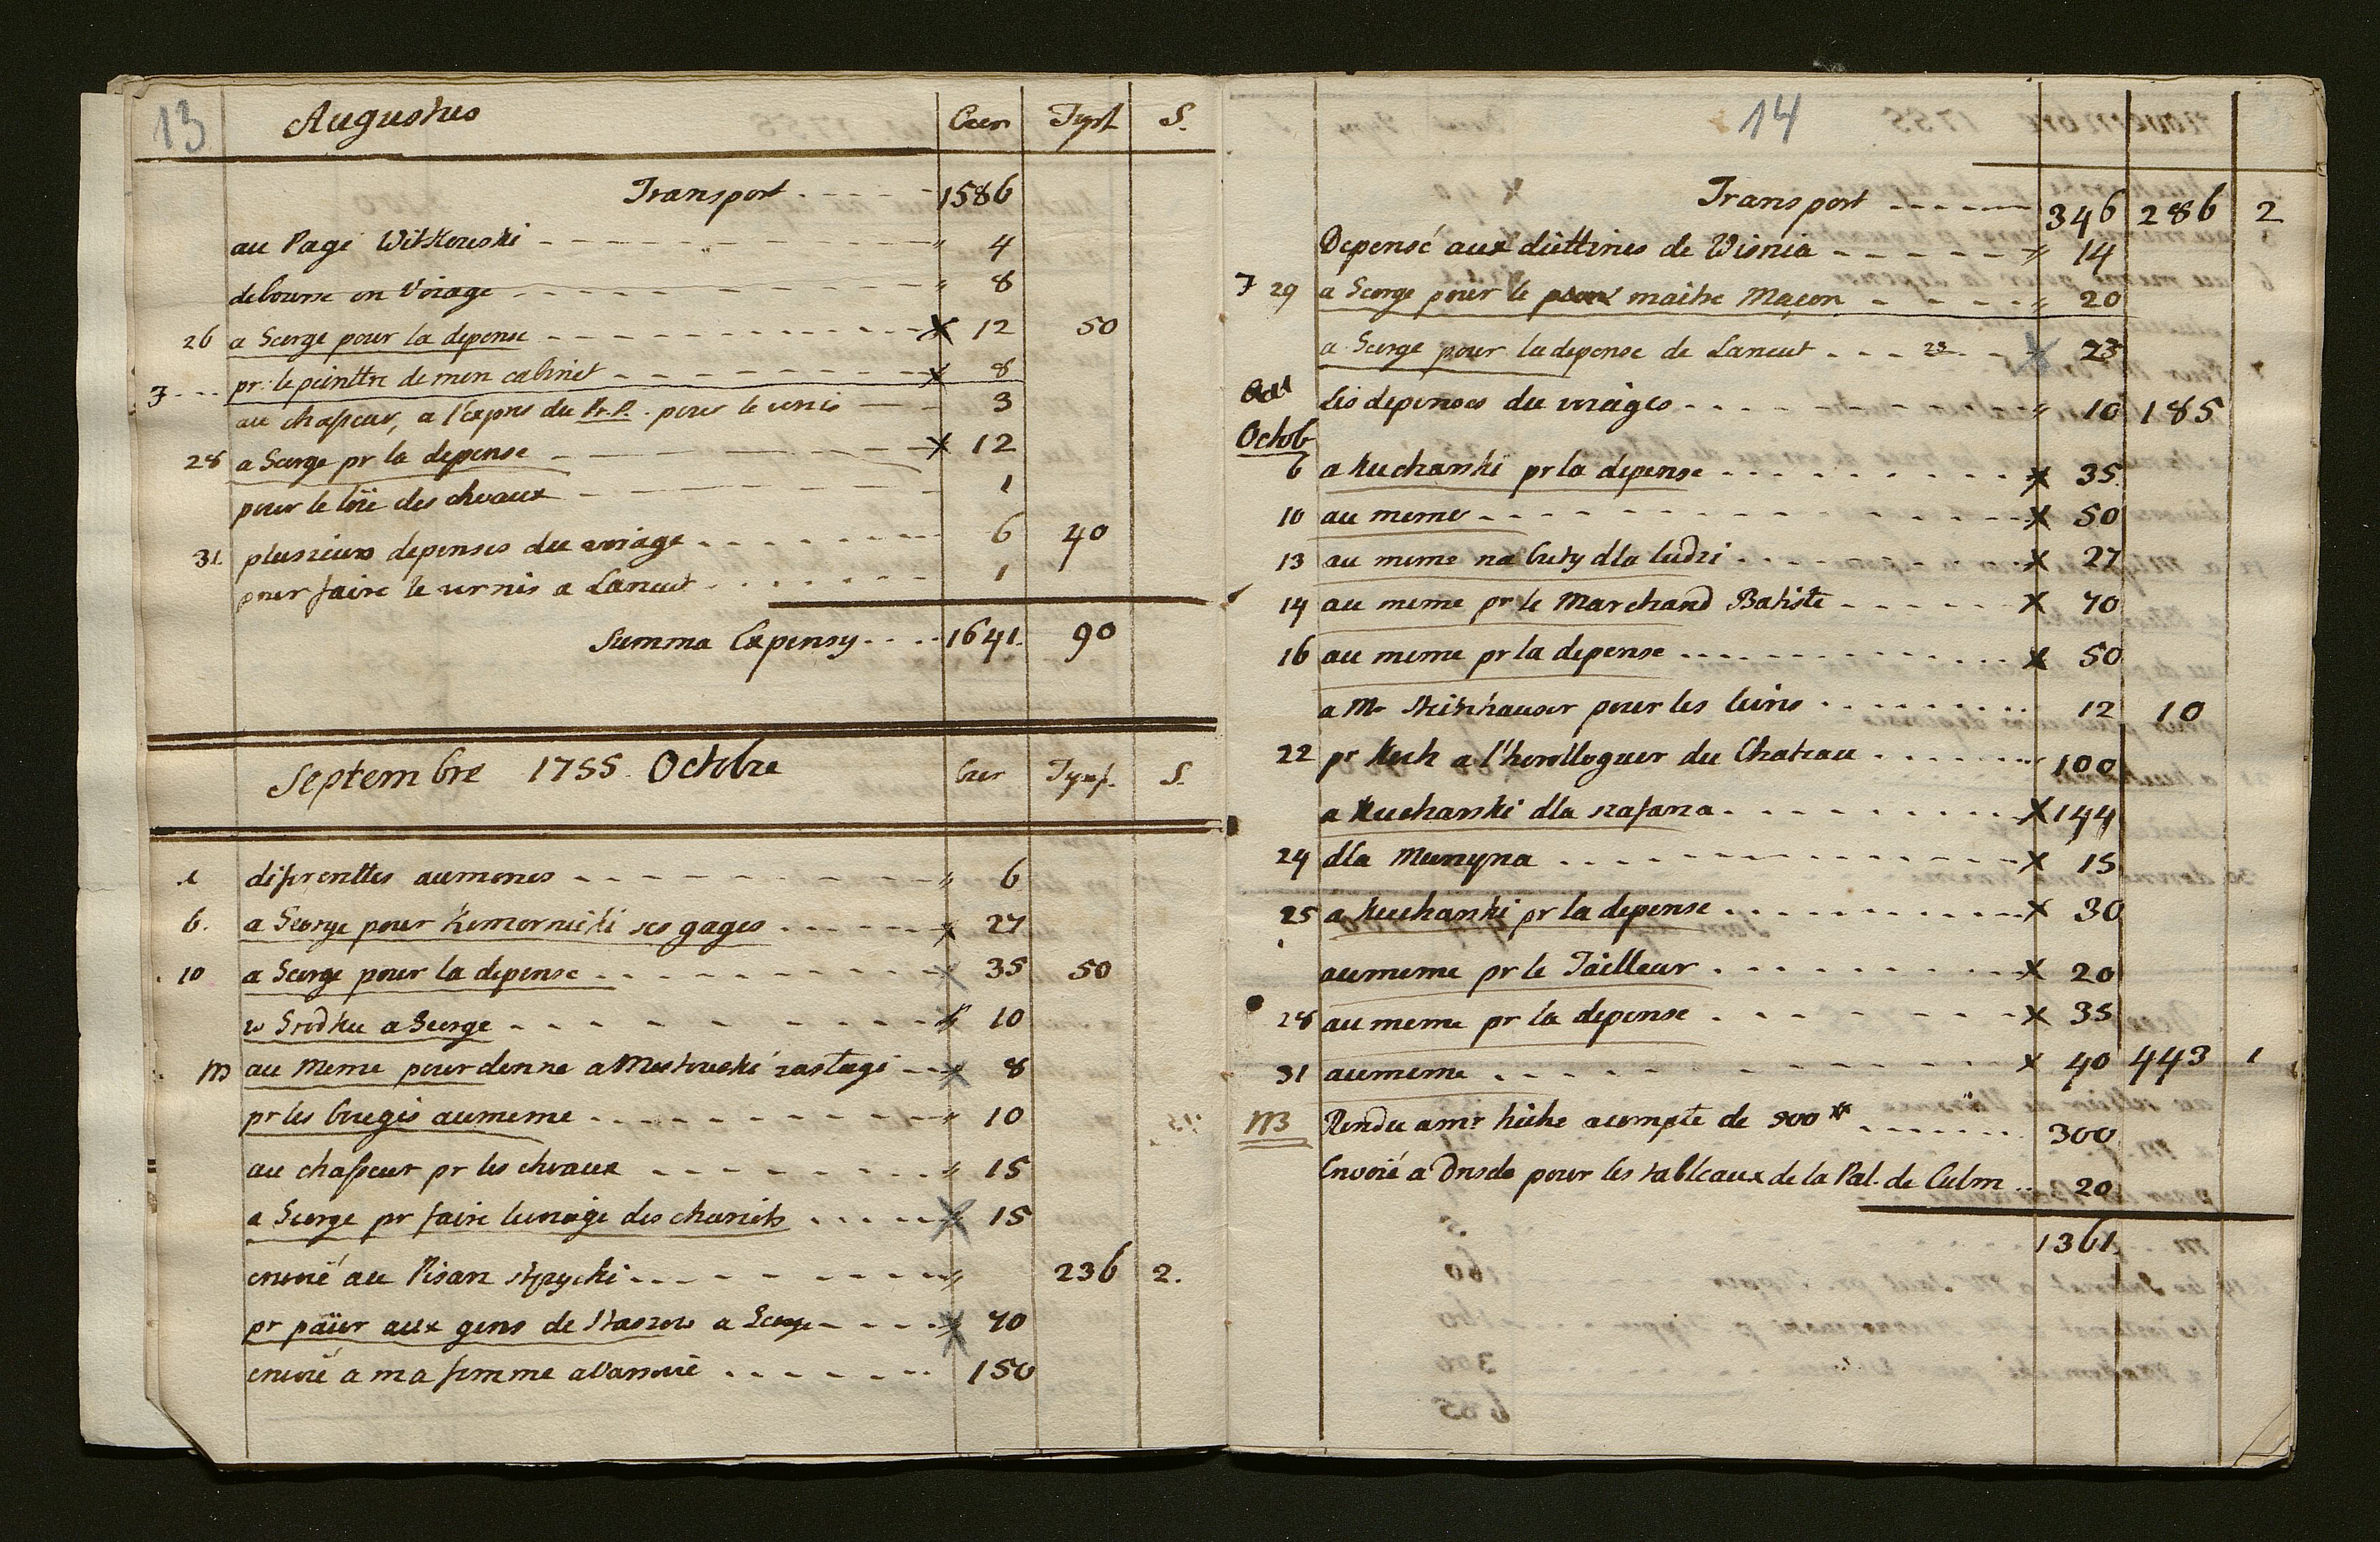 13 Augustus Czer Tynf S.
Transport 1586
au Page Witkowski 4
debourse en Voiage 8
26 a George pour la depense 12 50
pr: le peinttre de mon cabinet 8
au chasseur, a l'expres du Pr. P. pour le vernis 3
28 a George pr la depense 12
pour le loïe des chvaux 1
31 plusieurs depenses du voiage 6 40
pour faire le vernis a Lancut 1
Summa Expensy 1641. 90
Septembre 1755. Octobre Czer Tynf. S.
1 difirenttes aumones 6
6. a George pour Komornicki ses gages 27
10 a George pour la depense 35 50
w Srodku a George 10
au meme pour donne a Mostowski zastagi 8
pr les bougis au meme 10
au chasseur pr les chvaux 15
a George pr faire le voiage des chariots 15
envoié au Pisarz 236 2.
pr païer aux gens de Staszow a George 70
envoié a ma femme a Varsovie 150
14
Transport 346 286 2
Depensé aux diettines de Wisnia 14
29 a George pour le maitre Maçon 20
a George pour la depense de Lancut 23 23
les depenses du voiages 10 185
Octob
6 a Kuchanski pr la depense 35
10 au meme 50
13 au meme na buty dla ludzi 27
14 au meme pr le Marchand Batiste 70
16 au meme pr la depense 50
a Mr pour les livrs 12 10
22 pr Koch a l'horolloguer du Chateau 100
a Kuchanski dla szafarza 144
24 dla Murzyna 15
25 a Kuchanski pr la depense 30
au meme pr le Tailleur 20
28 au meme pr la depense 35
31 au meme 40 443 1
Rendu a mr acompte de 500 300
Envoié a Dresde pour les tableaux de la Pal. de Culm 20
1361.